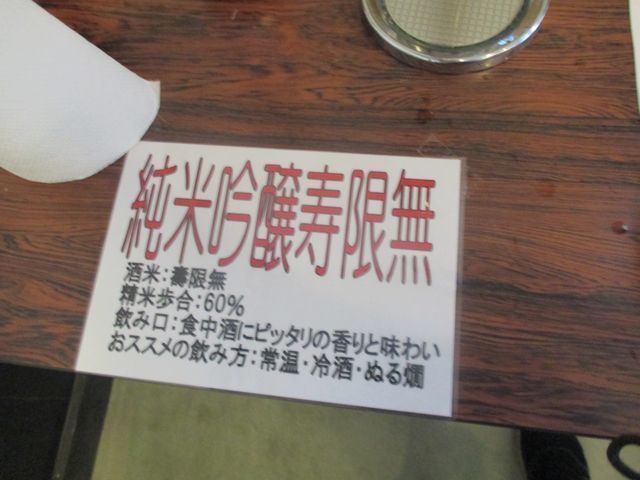 純米吟醸寿限無
酒米：壽限無
精米歩合：60%
飲み口：食中酒にピッタリの香りと味わい
おススメの飲み方：常温・冷酒・ぬる燗